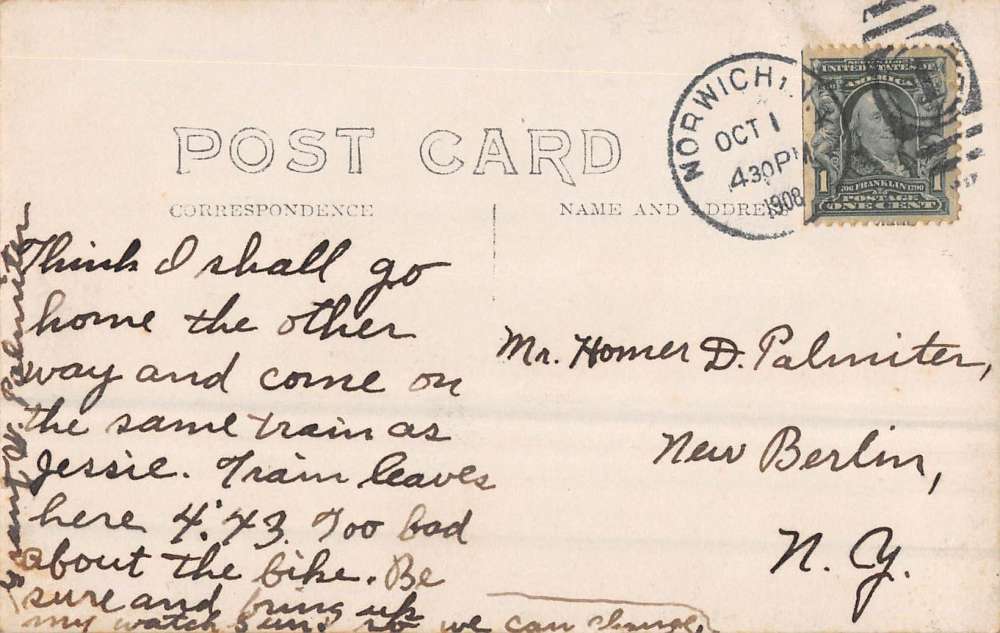 POST CARD
CORRESPONDENCE
NAME AND ADDRESS
NORWICH
OCT 1
430PM
1908
UNITED STATES OF
AMERICA
1
1706 FRANKLIN 1790
POSTAGE
1
ONE CENT
Think I shall go
home the other
way and come on
the same train as
Jessie. Train leaves
here 4:43. Too bad
about the bike. Be
sure and bring up
my watch Sun. so we can change.
Grant W. Palmiter
Mr. Homer D. Palmiter,
New Berlin,
N. Y.